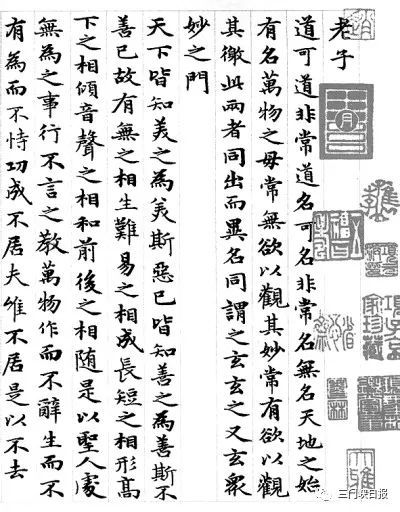 老子
道可道非常道名可名非常名無名天地之始
有名萬物之母常無欲以觀其妙常有欲以觀
其徼此兩者同出而異名同謂之玄玄之又玄衆
妙之門
天下皆知美之為美斯惡已皆知善之為善斯不
善已故有無之相生難易之相成長短之相形高
下之相傾音聲之相和前後之相随是以聖人處
無為之事行不言之教萬物作而不辭生而不
有為而不恃功成不居夫惟不居是以不去
項子京
家珍藏
三门峡日报